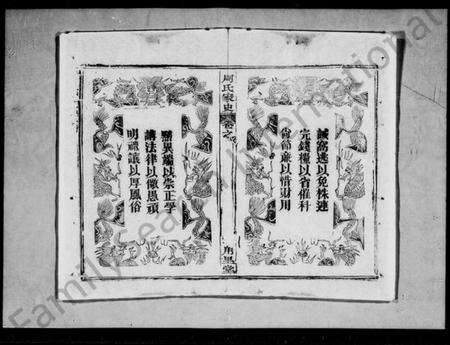 誡窩逃以免株連
完錢糧以省催科
尚節儉以惜財用
周氏家史
卷之
黜異端以崇正學
講法律以儆愚頑
明禮讓以厚風俗
FamilySearch International